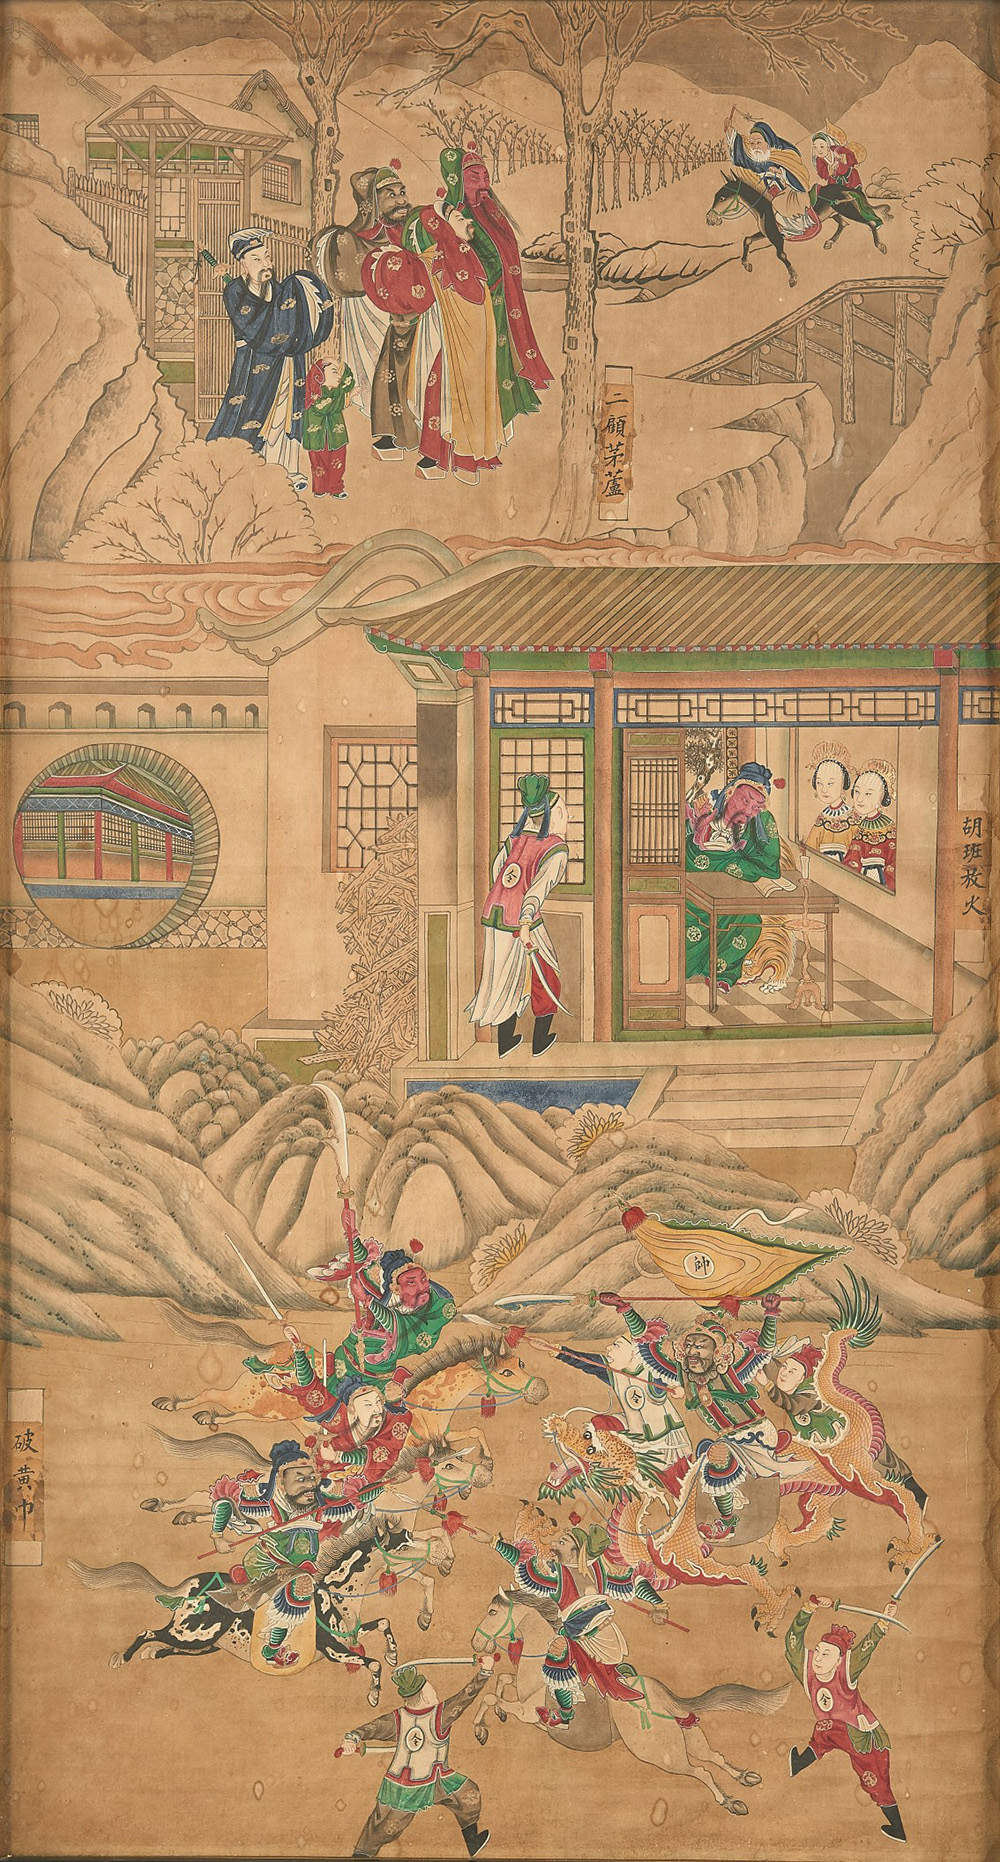 二顧茅蘆
胡班放火
令
帥
令
令
破黄巾
令
令